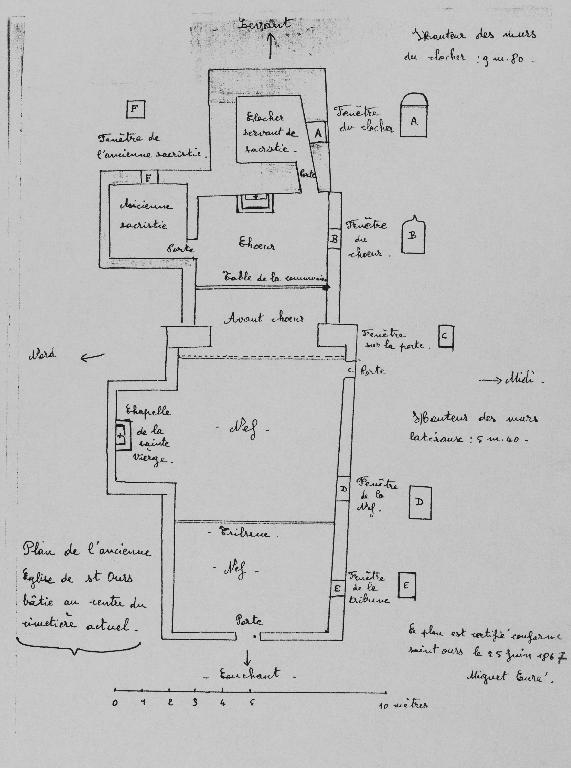 Levant
Hauteur des murs
du clocher : 9 m. 80.
F
Fenêtre de
l'ancienne sacristie.
Clocher
servant de
sacristie.
A
Fenêtre
du clocher
A
F
Porte
Ancienne
sacristie
Porte
Choeur
B
Fenêtre
du
choeur.
B
Table de la communion
Avant choeur
Fenêtre
sur la porte.
C
Nord
C
Porte
Midi.
Chapelle
de la
sainte
Vierge.
- Nef -
Hauteur des murs
latéraux : 5 m. 40 -
D
Fenêtre
de la
Nef.
D
- Tribune -
- Nef -
Plan de l'ancienne
Eglise de st Ours
bâtie au centre du
cimetière actuel.
E
Fenêtre
de la
tribune
E
Porte
Ce plan est certifié conforme
saint ours le 25 Juin 1867
Miguet Curé.
- Couchant -
0 1 2 3 4 5 10 mètres